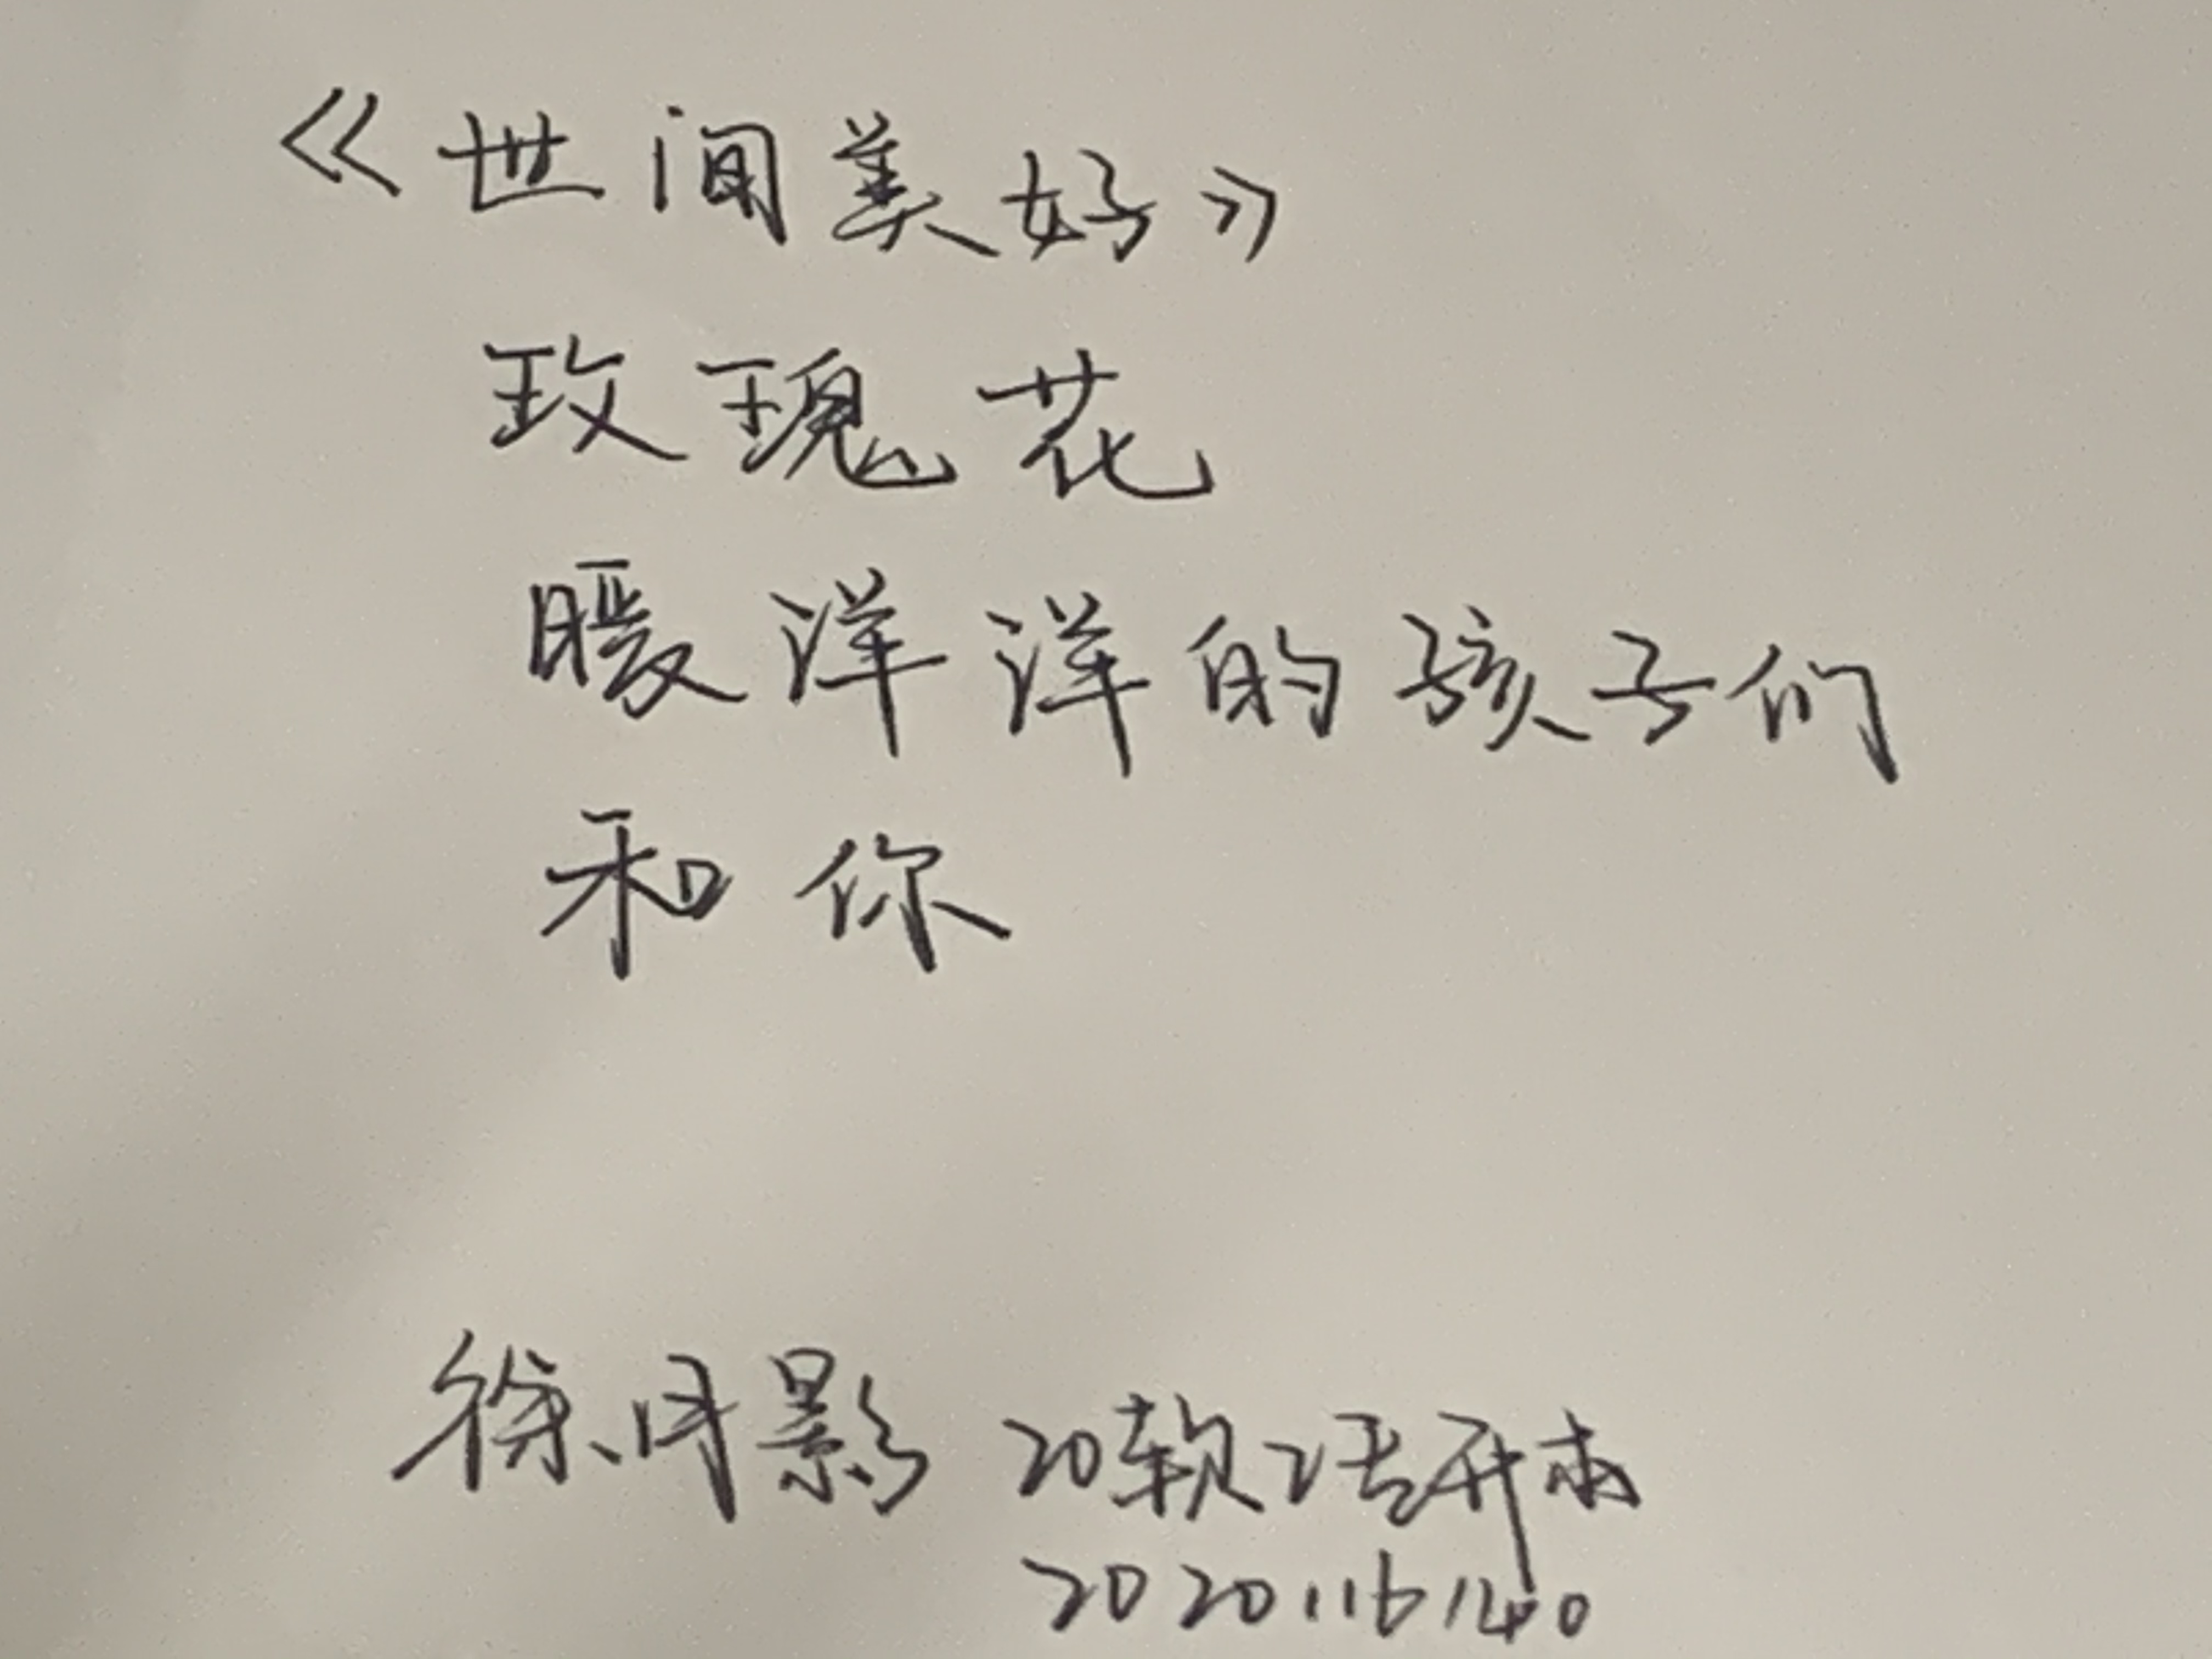 《世间美好》
玫瑰花
暖洋洋的孩子们
和你
徐月影 20软2张开本
2020116140